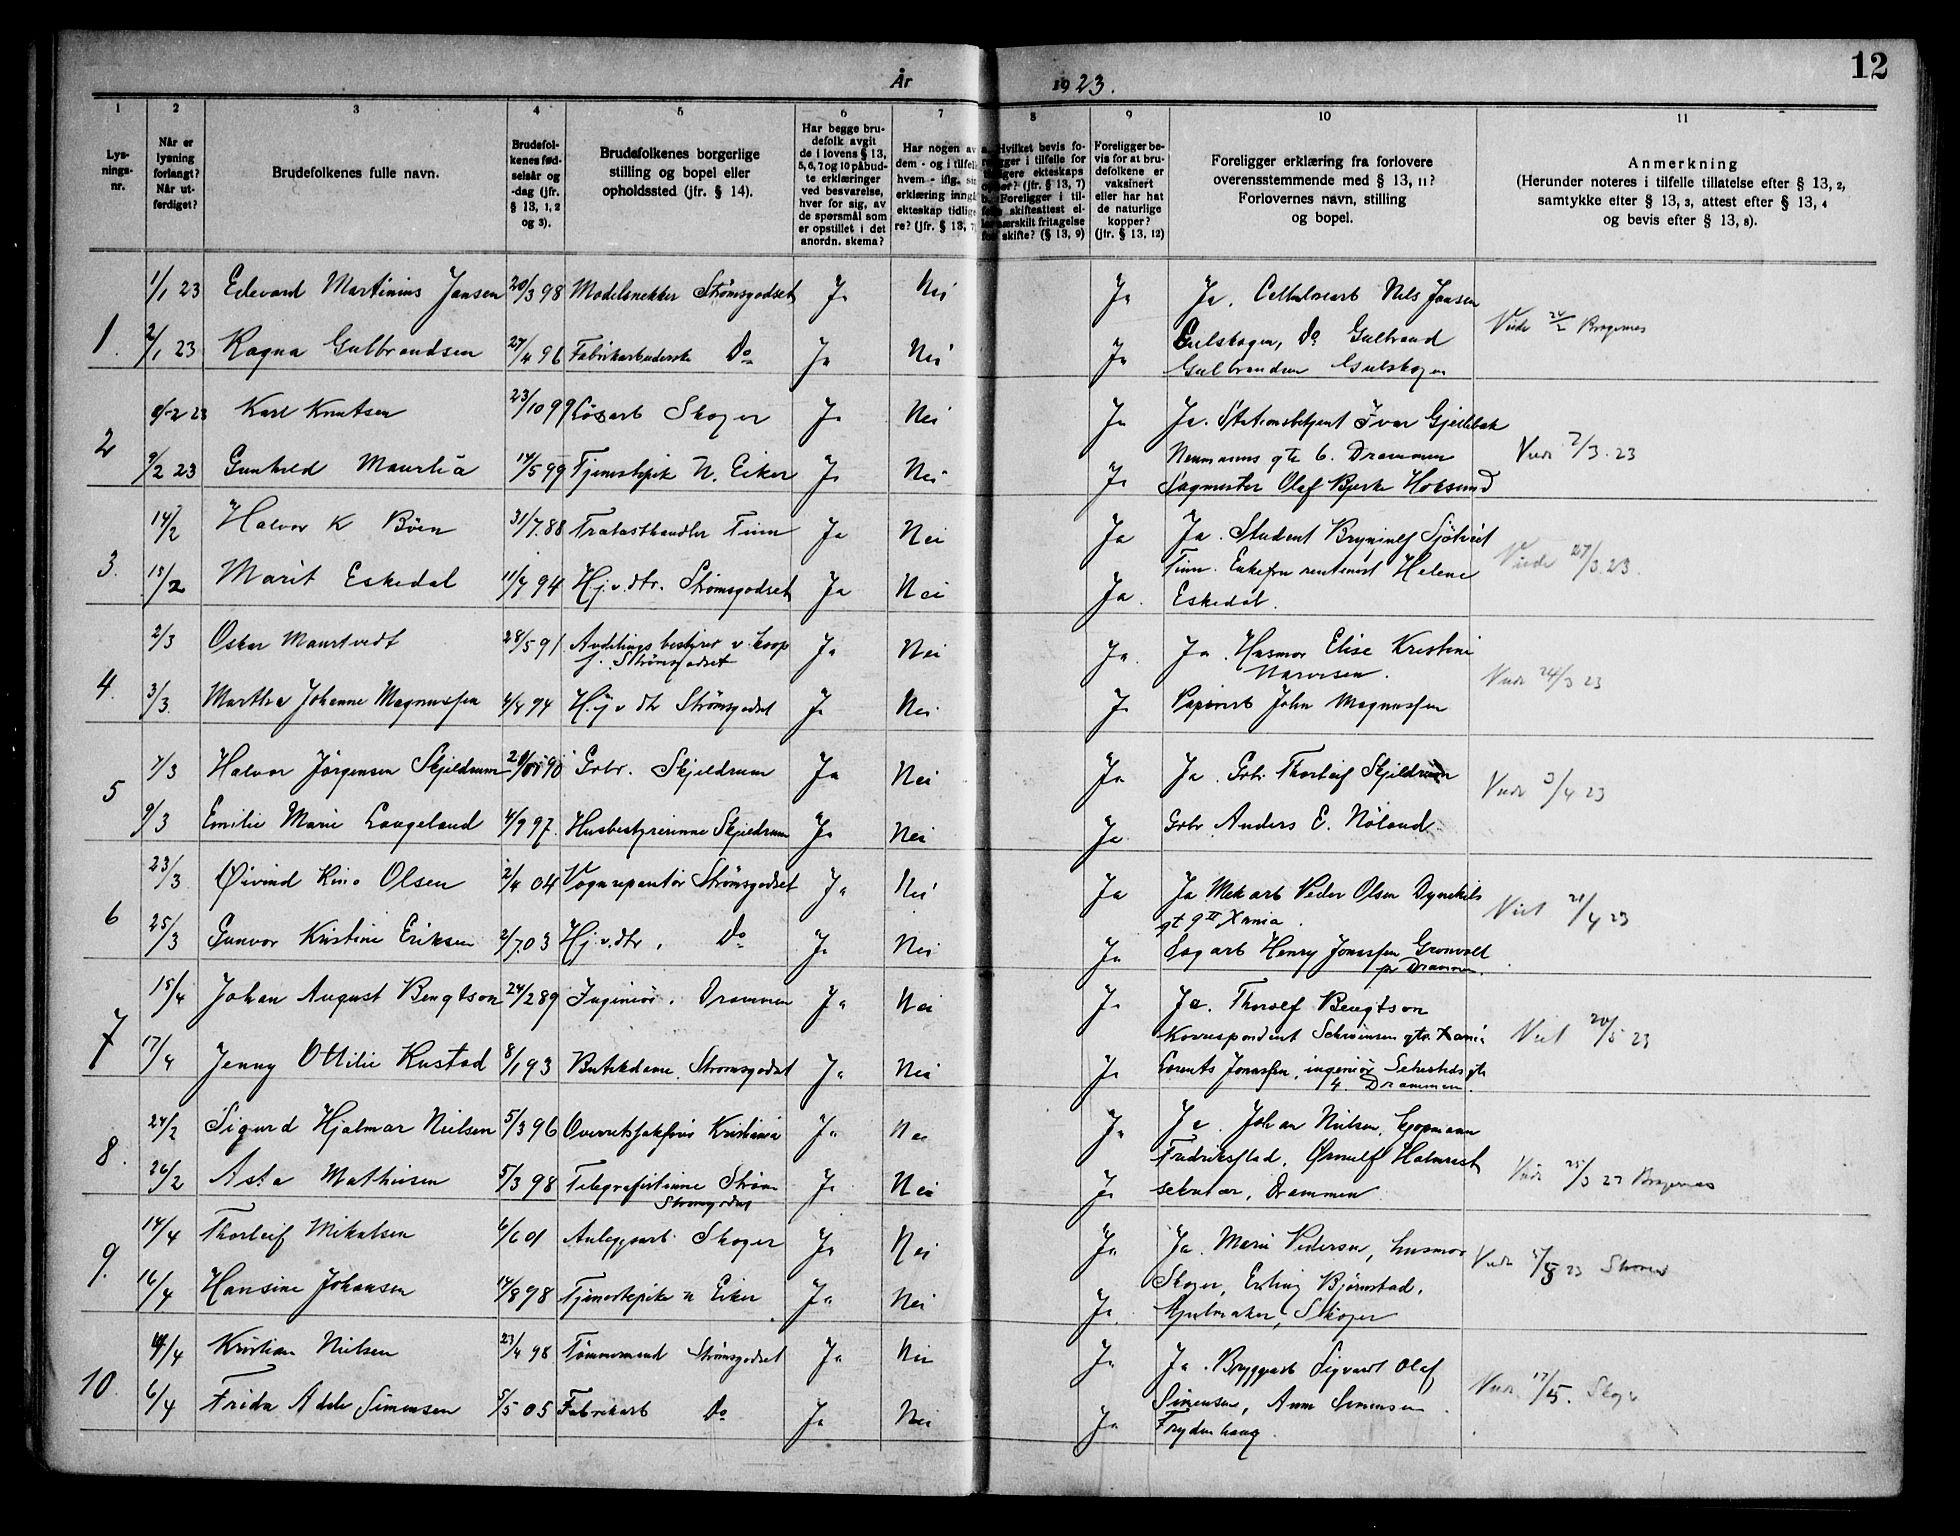 12
År 1923.
1 2 3 4 5 6 7 8 9 10 11
Lysningsnr.
Når er lysning forlangt? Når utferdiget?
Brudefolkenes fulle navn.
Brudefolkenes fødselsår og -dag (jfr. § 13, 1, 2 og 3).
Brudefolkenes borgerlige stilling og bopel eller opholdssted (jfr. § 14).
Har begge brudefolk avgit de i lovens § 13, 5, 6, 7 og 10 påbudte erklæringer ved besvarelse, hver for sig, av de spørsmål som er opstillet i det anordn. skema?
Har nogen av dem - og i tilfelle hvem - iflg. sin erklæring inngått ekteskap tidligere? (jfr. § 13, 7)
Foreligger bevis for at brudefolkene er vaksinert eller har hat de naturlige kopper? (jfr. § 13, 12)
Foreligger erklæring fra forlovere overensstemmende med § 13, 11? Forlovernes navn, stilling og bopel.
Anmerkning
(Herunder noteres i tilfelle tillatelse efter § 13, 2, samtykke efter § 13, 3, attest efter § 13, 4 og bevis efter § 13, 8).
1/1 23 Edevard Martinius Jansen 20/3 98 Modelsnekker Strømsgodset Ja Nei Ja Ja. Cellulosearb Nils Jansen
1. 2/1 23 Ragna Gulbrandsen 27/4 96 Fabrikarbeiderske Do Ja Nei Ja Gulskogen, Do Gulbrand
Gulbrandsen Gulskogen
Viede 24/2 Bragernes
Karl Knutsen 23/10 99 Løsarb Skoger Ja Nei Ja Ja. Stationsbetjent Ivar Gjellebæk
2 9/2 23 Gunhild 14/5 99 Tjenestepike N. Eiker Ja Nei Ja Neumanns gte 6. Drammen
Sagmester Olaf Bjerke Hokksund
Viede 7/3. 23
14/2 Halvor K Bøen 31/7. 88 Trælasthandler Tinn Ja Nei Ja Ja. Student Brynjulf Sjøtveit
3. 15/2 Marit Eskedal 11/7 94 Hj. v. dtr. Strømsgodset Ja Nei Ja. Tinn. Enkefru rentenist Helene
Eskedal.
Viede 27/3. 23.
2/3 Oskar Maurtvedt 28/5 91 Avdelingsbestyrer v. koop
f. Strømsgodset Ja Nei Ja. Ja. Husmor Elise Kristine
4. 3/3. Martha Johanne Magnussen 4/8 94 Hj v dtr Strømsgodset Ja Nei Ja John Magnussen
Viede 24/3 23
7/3 Halvor Jørgensen Skjeldrum 90 Grbr. Skjeldrum Ja Nei Ja Ja. Grbr. Thorleif Skjeldrum
5 9/3 Emilie Marie Langeland 4/9 97. Husbestyrerinne Skjeldrum Ja Nei Ja Grbr. Anders E. Nøland.
Viede 3/4 23
23/3 Øivind Kino Olsen 2/4 04 Vognreparatør Strømsgodset Ja Nei Ja Ja Mek arb Peder Olsen Dynekils
gt 9 II Xania.
6 25/3 Gunvor Kristine Eriksen 2/7. 03 Hj. v. dtr. Do Ja Nei Ja Sagarb Henry Jonassen Grønvold
pr Drammen.
Viet 21/4 23
15/4 Johan August Bengtson 24/2 89 Ingeniør. Drammen Ja Nei Ja Ja. Thorolf Bengtson
Korrespondent Schwensen gtr. Xania
7 17/4 Jenny Ottilie Rustad 8/1 93 Butikdame. Strømsgodset Ja Nei Ja Lorents Jonassen, ingeniør Sehesteds gte
4. Drammen
Viet 20/5 23
24/2 Sigurd Hjalmar Nielsen 5/3 96 Overretssakfører Kristiania Ja Nei Ja Ja. Johan Nielsen, kjøpmann
8. 26/2 Asta Mathisen 5/3 98 Telegrafistinne Strøm
Strømsgodset Ja Nei Ja Fredrikstad, Ørnulf Holmrast
sekretær, Drammen.
Viede 25/3 23 Bragernes
14/4 Thorleif Mikalsen 6/6 01 Anleggsarb. Skoger Ja Nei Ja Ja. Marie Pedersen, husmor
9. 16/4 Hansine Johansen 14/8 98 Tjenestepike n Eiker Ja Nei Ja. Skoger, Erling Bjørnstad,
Hjulmaker, Skoger
23
Kristian Nielsen 23/4 98 Tømmermand Strømsgodset Ja Nei Ja Ja. Bryggearb Sigvart Olaf
10. 6/4 Frida Adele Simensen 5/5 05 Fabrikarb Do Ja Nei Ja Simensen, Anna Simensen
Frydenhaug.